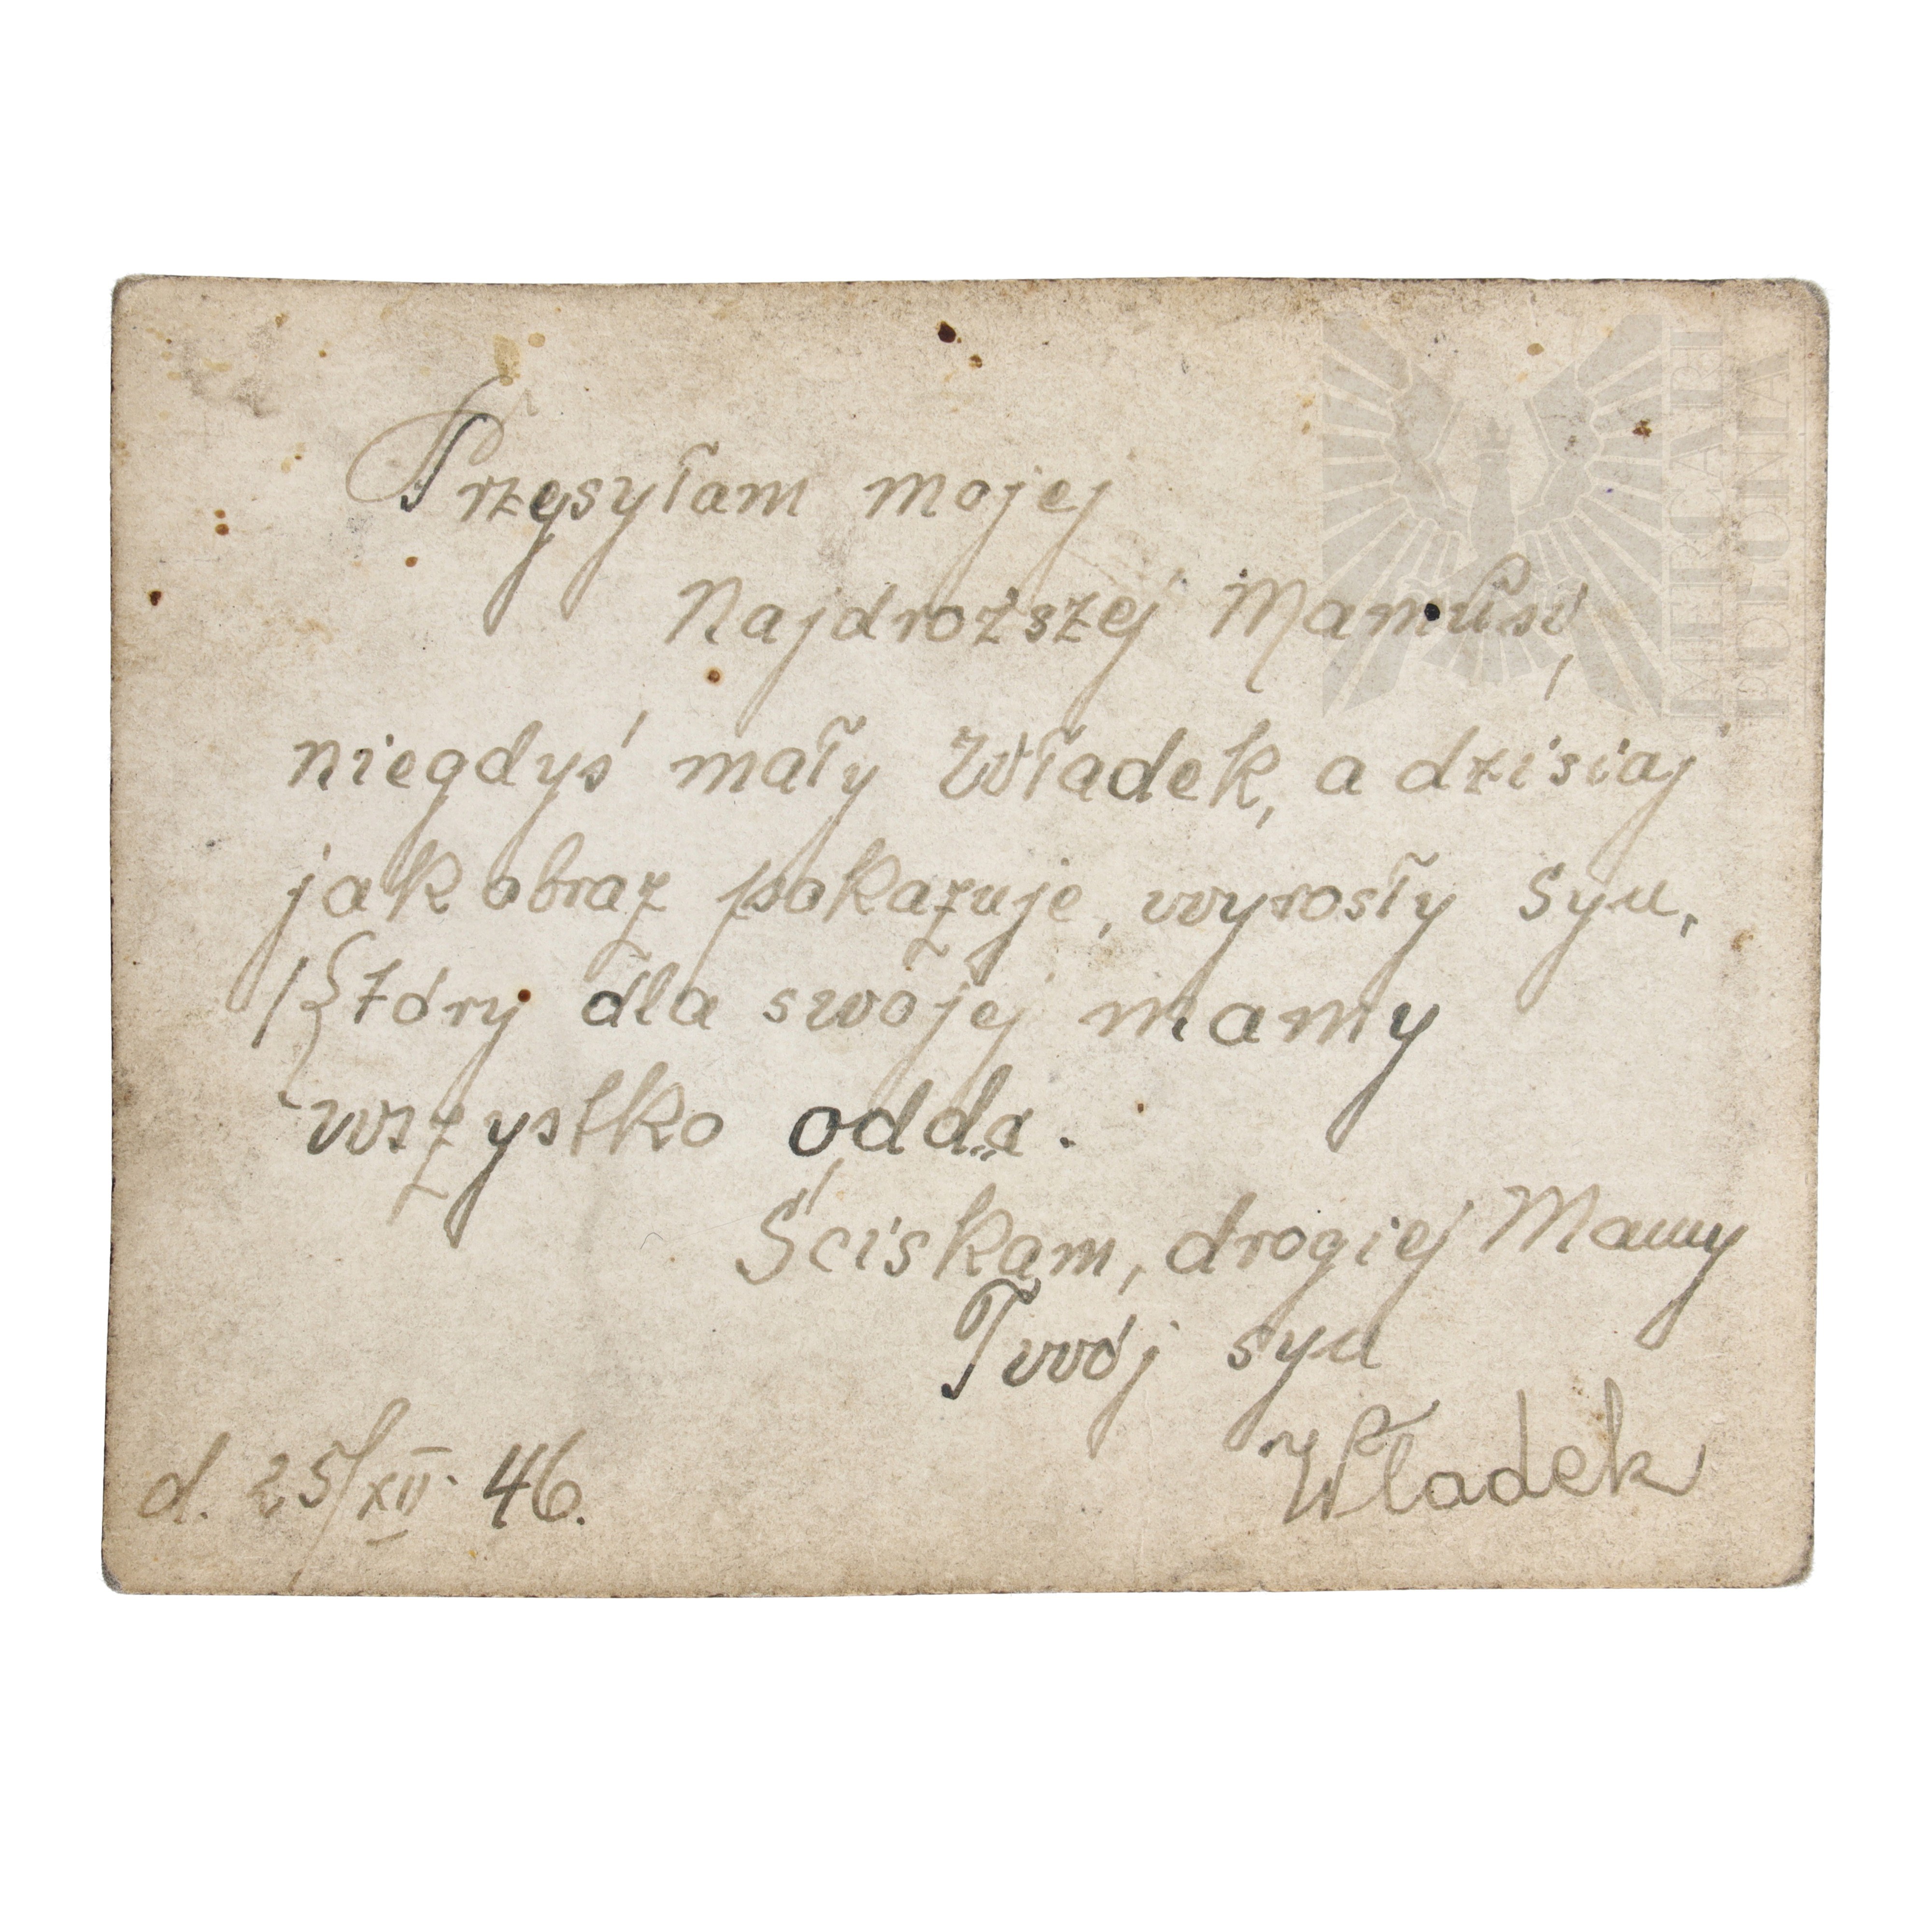 Przesyłam mojej
Najdroższej Mamusi
niegdyś mały Władek, a dzisiaj
jak obraz pokazuje, wyrosły syn,
który dla swojej mamy
wszystko odda.
Ściskam, drogiej Mamy
Twój syn
Władek
d. 25/XII. 46.
MERCARI
POLONIA